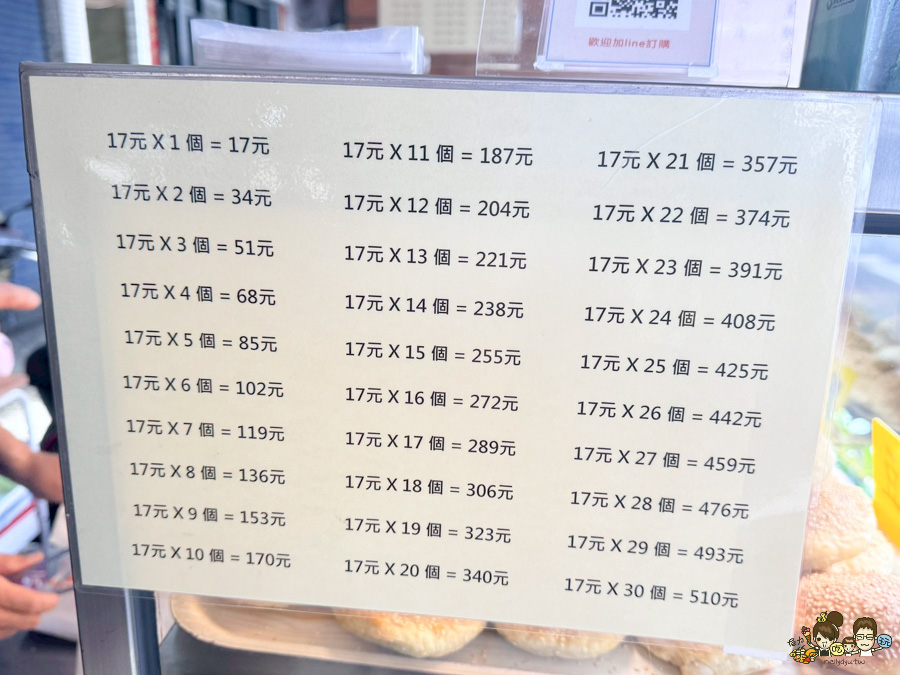 歡迎加line訂購
17元 X 1 個 = 17元
17元 X 2 個 = 34元
17元 X 3 個 = 51元
17元 X 4 個 = 68元
17元 X 5 個 = 85元
17元 X 6 個 = 102元
17元 X 7 個 = 119元
17元 X 8 個 = 136元
17元 X 9 個 = 153元
17元 X 10 個 = 170元
17元 X 11 個 = 187元
17元 X 12 個 = 204元
17元 X 13 個 = 221元
17元 X 14 個 = 238元
17元 X 15 個 = 255元
17元 X 16 個 = 272元
17元 X 17 個 = 289元
17元 X 18 個 = 306元
17元 X 19 個 = 323元
17元 X 20 個 = 340元
17元 X 21 個 = 357元
17元 X 22 個 = 374元
17元 X 23 個 = 391元
17元 X 24 個 = 408元
17元 X 25 個 = 425元
17元 X 26 個 = 442元
17元 X 27 個 = 459元
17元 X 28 個 = 476元
17元 X 29 個 = 493元
17元 X 30 個 = 510元